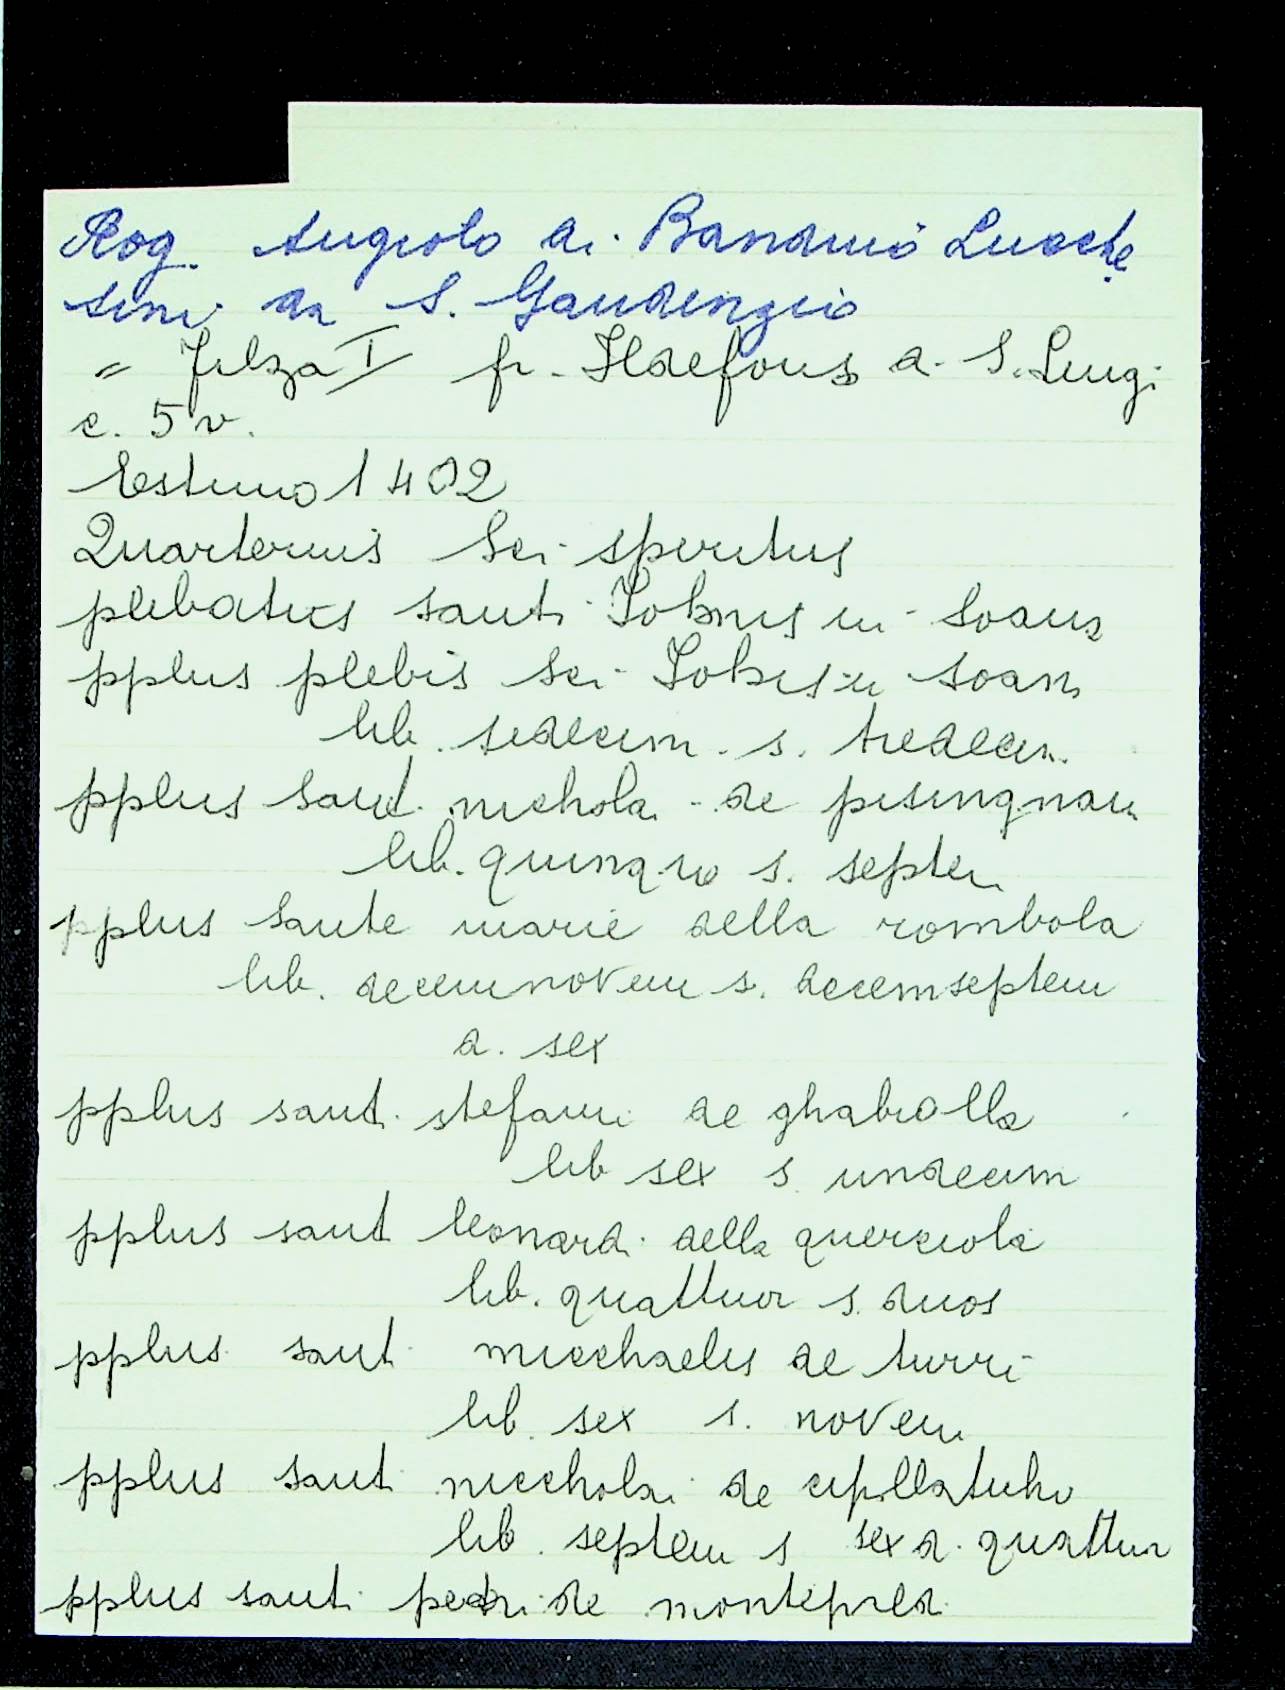 Rog. Angiolo di Bandino Lucche
sini da S. Gaudenzio
" Filza I fr. Ildefonso d. S. Luigi
c. 5 v.
Estimo 1402
Quarternis Sci spiritus
plebatus santi Johnis in Soana
pplus plebis Sci Johis in soana
lib. sedecim s. tredecim
pplus santi nichola de pisingnan
lib. quinque s. septem
pplus sante marie della rombola
lib. decemnovem s. decemseptem
d. sex
pplus santi stefani de ghabiolla
lib sex s. undecim
pplus santi leonardi della querciola
lib. quattuor s. duos
pplus santi micchaelis de turri
lib. sex s. novem
pplus santi nicchola de cipillaticho
lib. septem s sex d. quattuor
pplus santi petri de